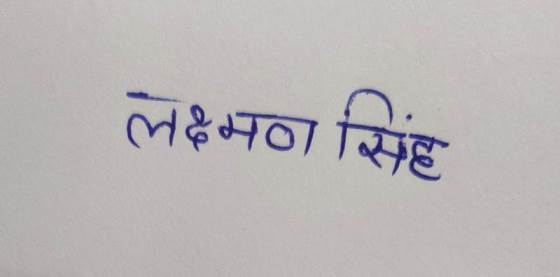 लक्ष्मण सिंह